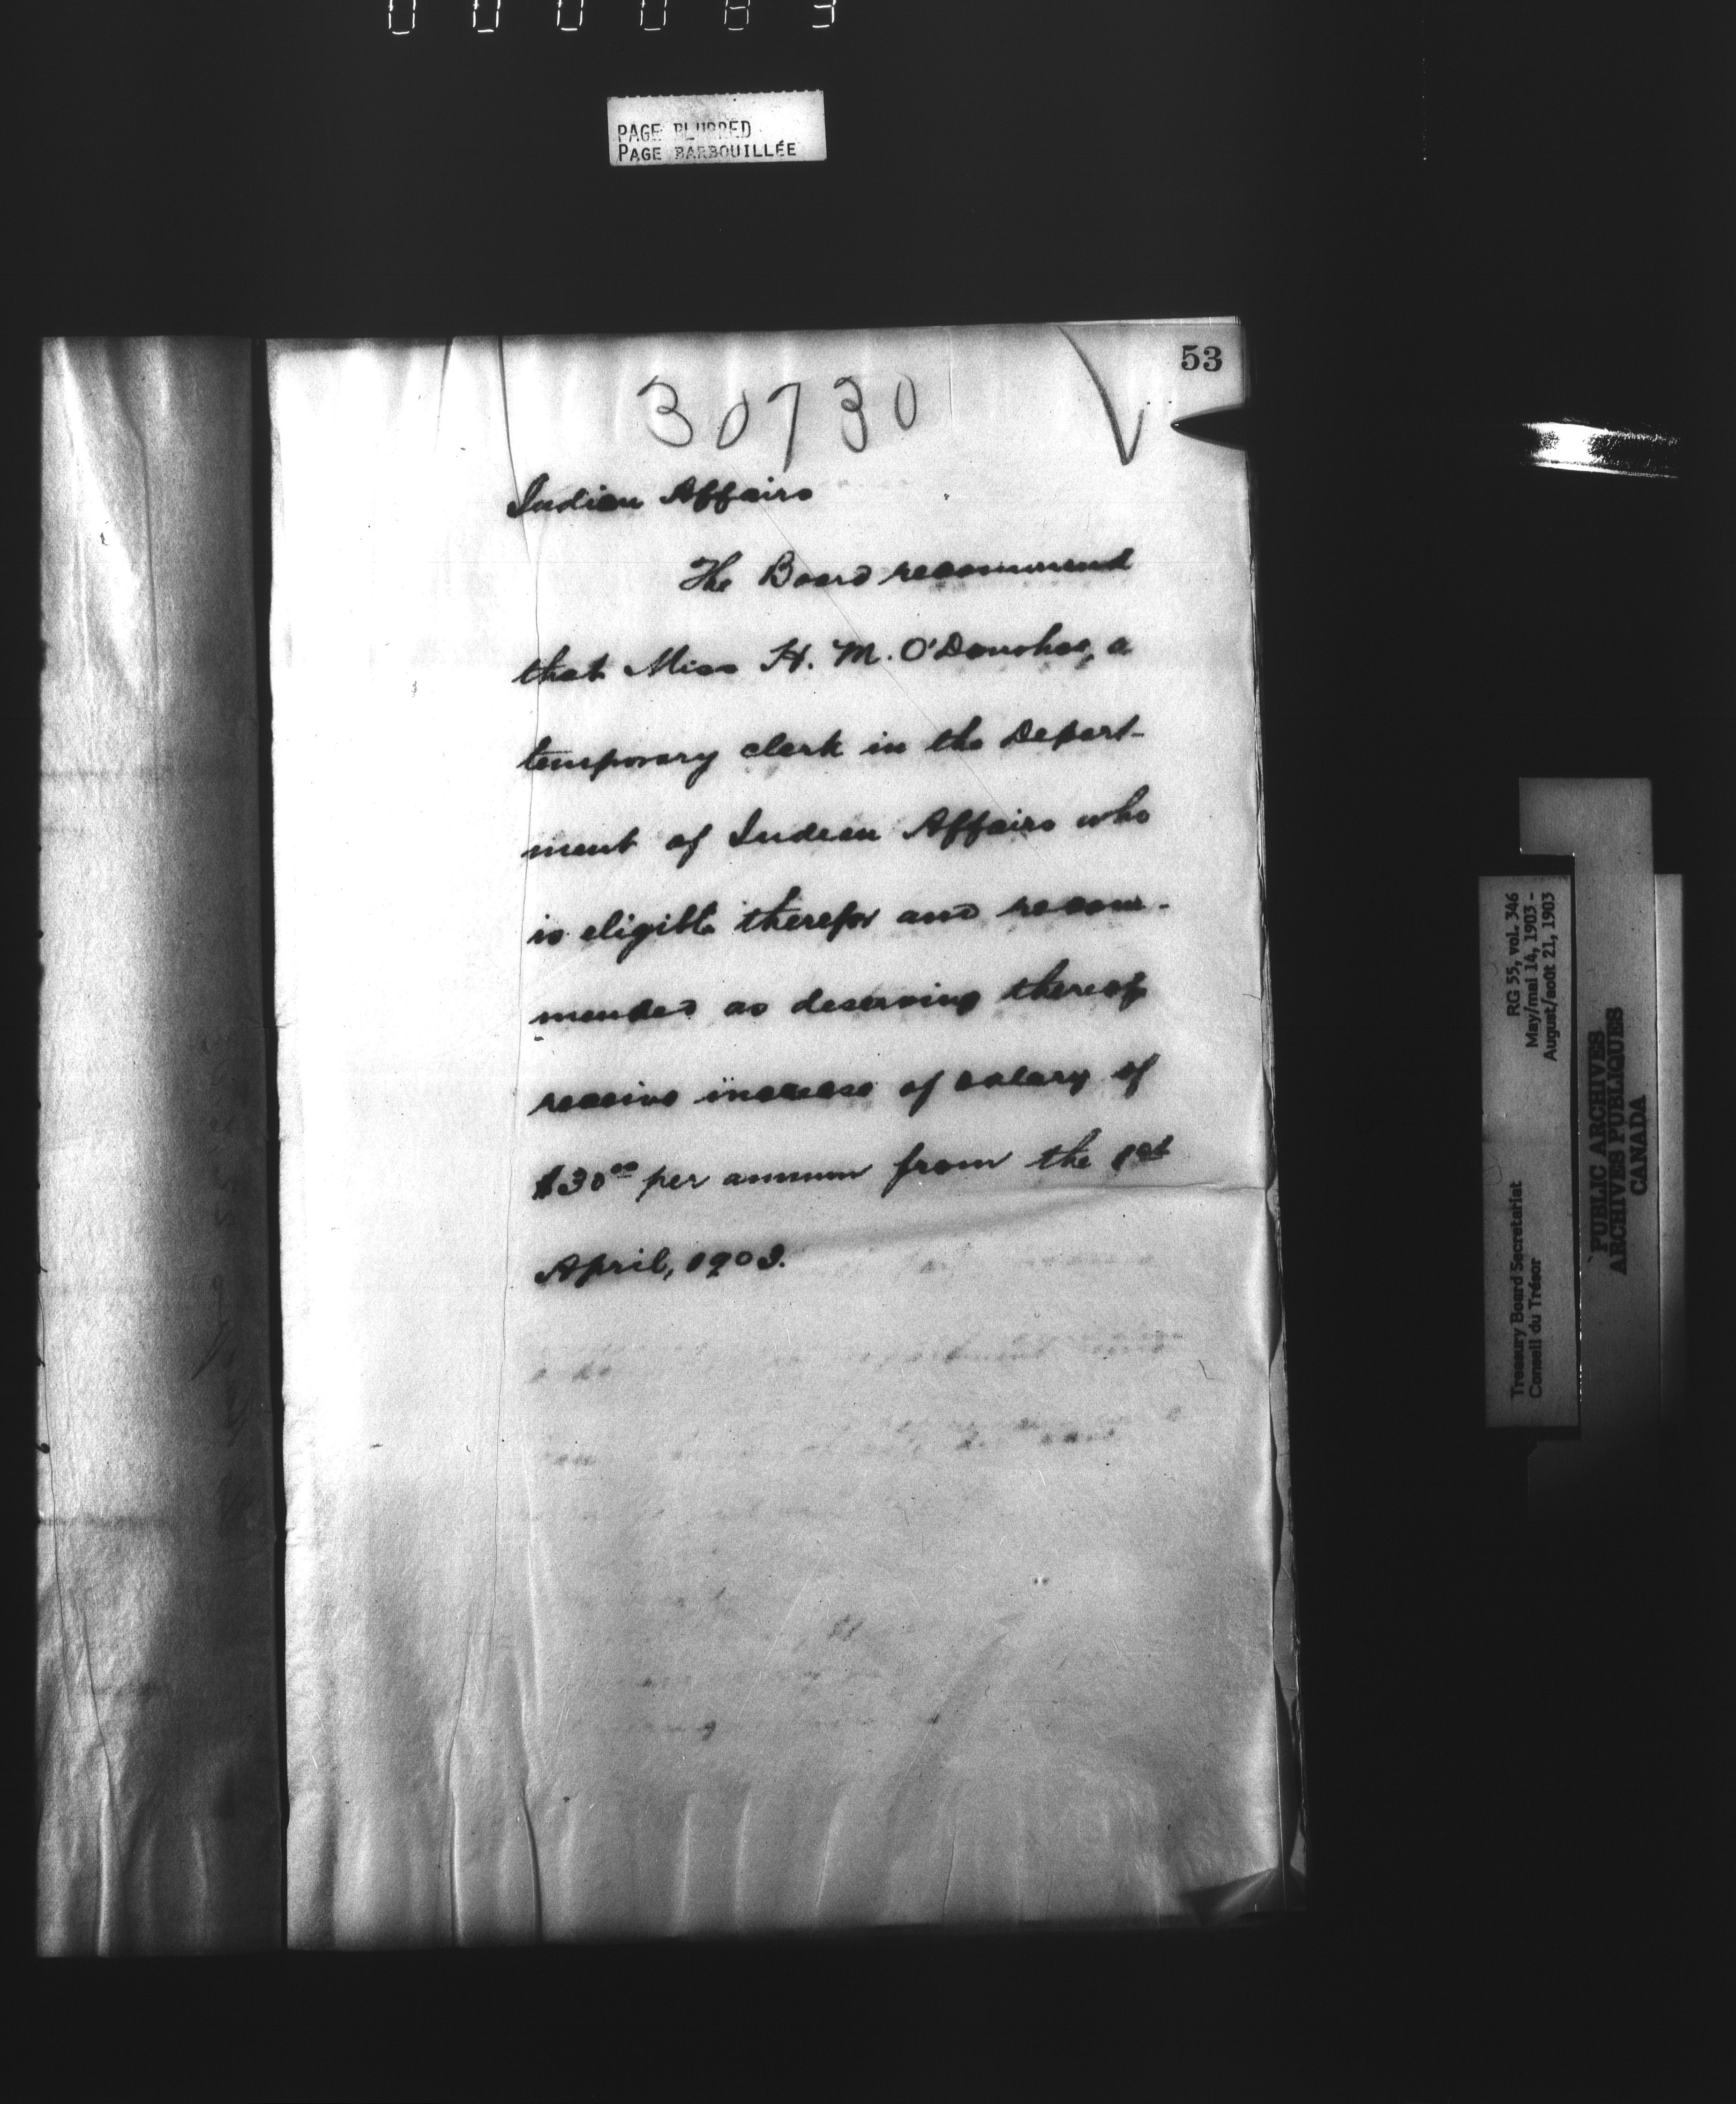 000083
PAGE BLURRED
PAGE BARBOUILLÉE
53
30730
Indian Affairs
The Board recommend
that Miss H. M. O'Donohoe, a
temporary clerk in the Depart-
ment of Indian Affairs who
is eligible therefor and recom-
mended as deserving thereof
receive increase of salary of
$30⁰⁰ per annum from the 1st
April, 1903.
RG 55, vol. 346
May/mai 14, 1903 -
August/août 21, 1903
Treasury Board Secretariat
Conseil du Trésor
PUBLIC ARCHIVES
ARCHIVES PUBLIQUES
CANADA